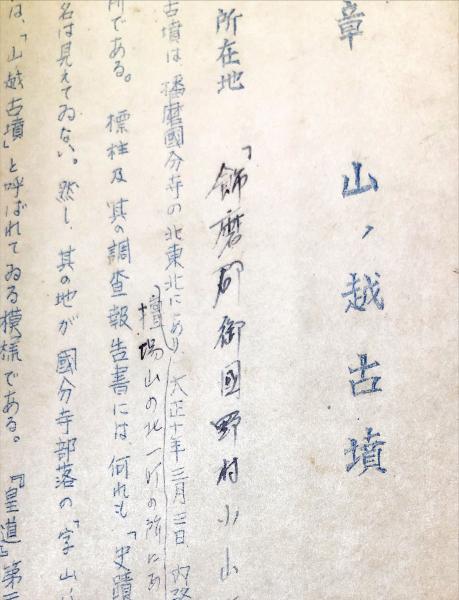 章
山ノ越古墳
所在地
「飾磨郡御国野村小山
古墳は、播磨國分寺の北東北にあり、大正十年三月三日、内務
壇場山の北一町の所にあ
所である。標柱及其の調査報告書には、何れも「史蹟
名は見えてゐない。然し、其の地が國分寺部落の「字山
は、「山越古墳」と呼ばれてゐる模様である。『皇道』第